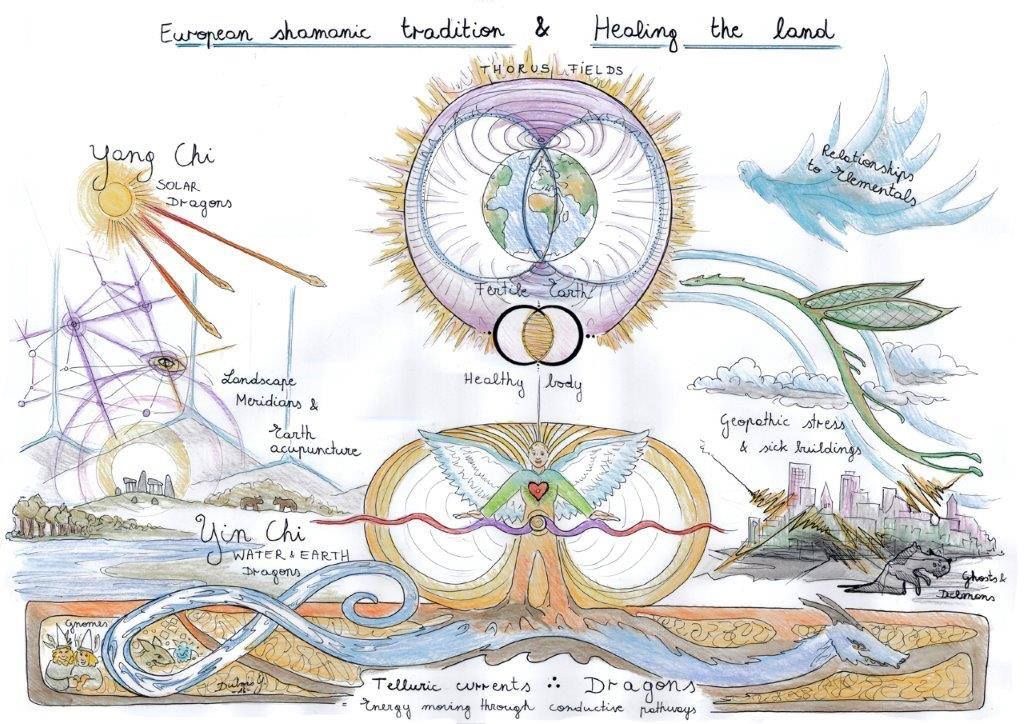 European shamanic tradition & Healing the land
THORUS FIELDS
Yang Chi
SOLAR
Dragons
Relationships
to Elementals
Fertile Earth
Healthy body
Landscape
Meridians &
Earth
acupuncture
Geopathic stress
& sick buildings
Yin Chi
WATER & EARTH
Dragons
Ghosts &
Delmons
Gnomes
Telluric currents ∴ Dragons
= Energy moving through conductive pathways